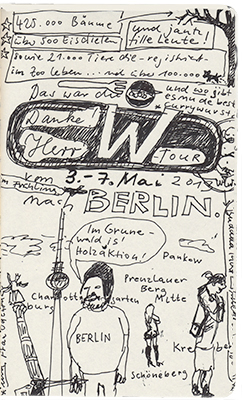 425.000 Bäume!
und janz
ville Leute!
über 500 Eisdielen
sowie 21.000 Tiere die registriert
im Zoo leben... und über 100.000
Das war die
und wo gibt
es nu de best
Currywurst
Danke!
Herr
W
TOUR
vom 3.-7. Mai
im Frühling
nach BERLIN.
Im Grune-
wald is'
Holzaktion!
Pankow
Prenzlauer
Berg
Mitte
Charlotten
burg
garten
BERLIN
Kreu
ber
Schöneberg